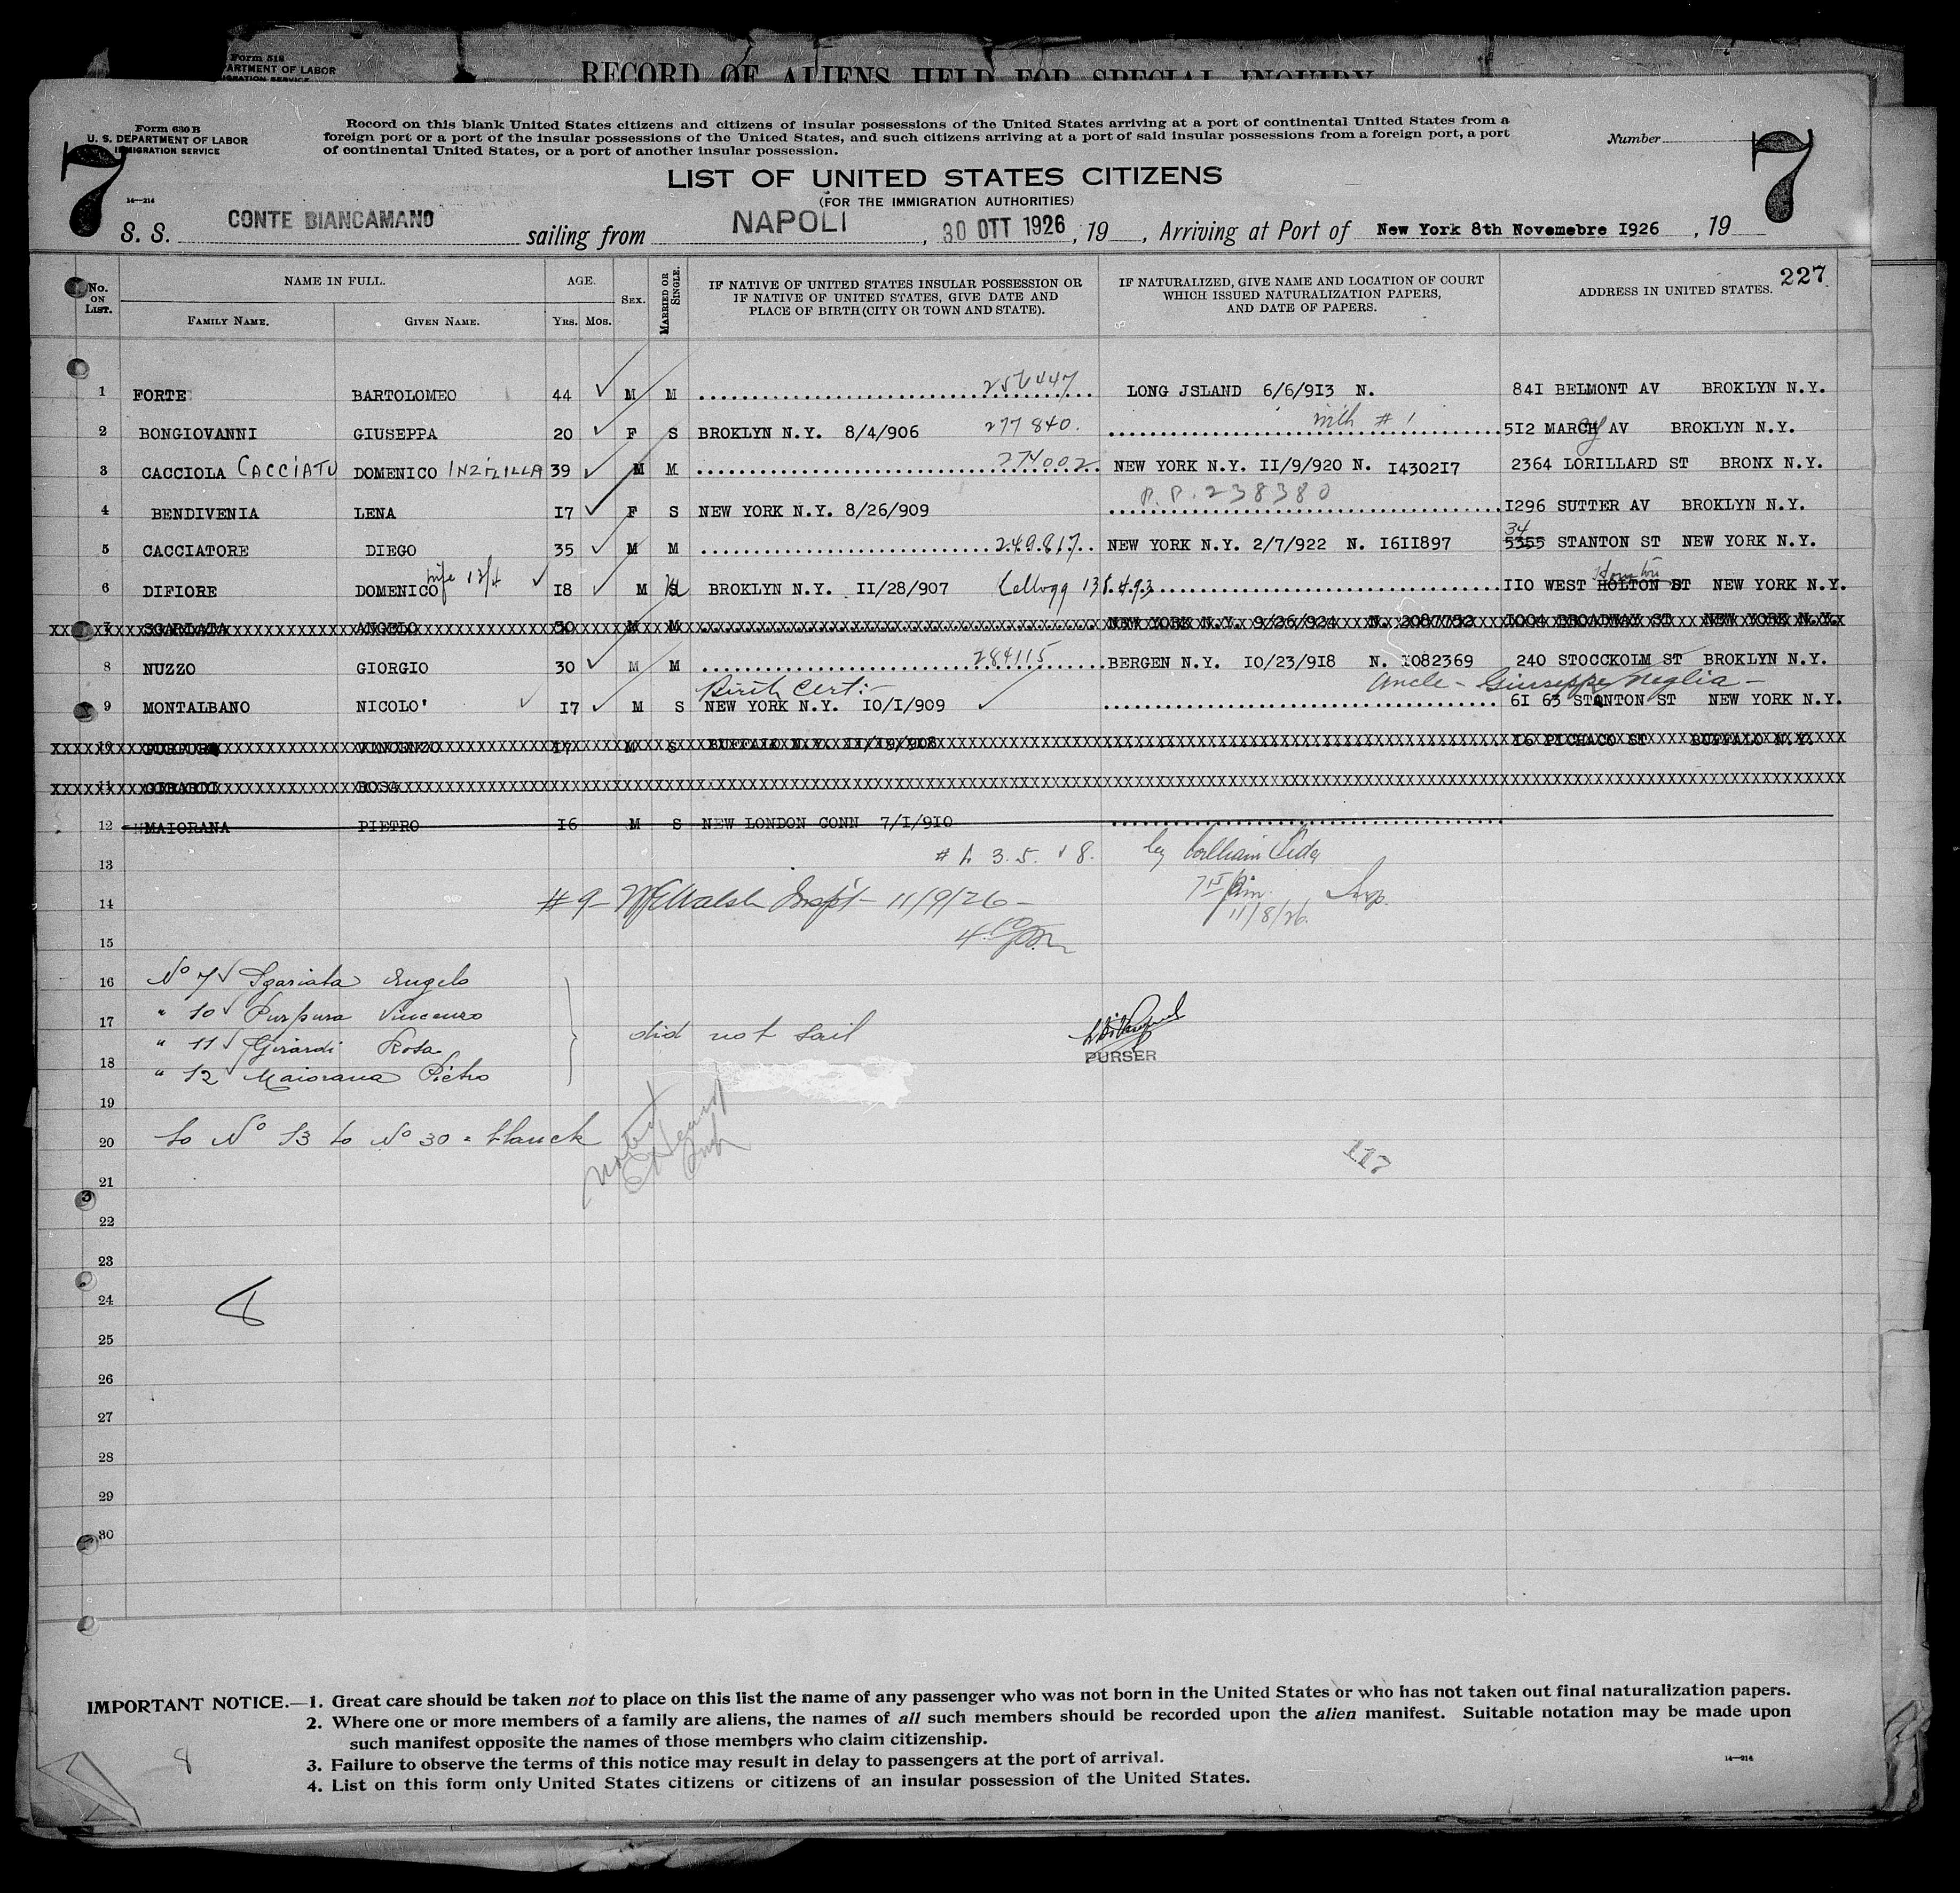 Form 518
DEPARTMENT OF LABOR
IMMIGRATION SERVICE
RECORD OF ALIENS HELD FOR SPECIAL INQUIRY
Form 630 B
U. S. DEPARTMENT OF LABOR
IMMIGRATION SERVICE
7
14—214
Record on this blank United States citizens and citizens of insular possessions of the United States arriving at a port of continental United States from a
foreign port or a port of the insular possessions of the United States, and such citizens arriving at a port of said insular possessions from a foreign port, a port
of continental United States, or a port of another insular possession.
Number
7
LIST OF UNITED STATES CITIZENS
(FOR THE IMMIGRATION AUTHORITIES)
S. S. CONTE BIANCAMANO sailing from NAPOLI, 30 OTT 1926, 19 , Arriving at Port of New York 8th Novemebre 1926 , 19
227
No. ON LIST. NAME IN FULL. FAMILY NAME. GIVEN NAME. AGE. YRS. MOS. SEX. MARRIED OR SINGLE. IF NATIVE OF UNITED STATES INSULAR POSSESSION OR IF NATIVE OF UNITED STATES, GIVE DATE AND PLACE OF BIRTH (CITY OR TOWN AND STATE). IF NATURALIZED, GIVE NAME AND LOCATION OF COURT WHICH ISSUED NATURALIZATION PAPERS, AND DATE OF PAPERS. ADDRESS IN UNITED STATES.
1 FORTE BARTOLOMEO 44 M M 256447 LONG JSLAND 6/6/913 N. 841 BELMONT AV BROKLYN N.Y.
2 BONGIOVANNI GIUSEPPA 20 F S BROKLYN N.Y. 8/4/906 277840. with # 1 512 MARCH AV BROKLYN N.Y.
3 CACCIOLA CACCIATU DOMENICO INZILILLA 39 M M 274002 NEW YORK N.Y. II/9/920 N. I4302I7 2364 LORILLARD ST BRONX N.Y.
4 BENDIVENIA LENA I7 F S NEW YORK N.Y. 8/26/909 P.P. 238380 I296 SUTTER AV BROKLYN N.Y.
5 CACCIATORE DIEGO 35 M M 249.817 NEW YORK N.Y. 2/7/922 N. I6II897 34 5355 STANTON ST NEW YORK N.Y.
6 DIFIORE DOMENICO wife 13/4 I8 M S BROKLYN N.Y. II/28/907 Kellogg 138.493 IIO WEST HOLTON ST NEW YORK N.Y.
7 SGARLATA ANGELO 50 M M NEW YORK N.Y. 9/26/924 N. 2087752 I004 BROADWAY ST NEW YORK N.Y.
8 NUZZO GIORGIO 30 M M 284115 BERGEN N.Y. IO/23/9I8 N. I082369 240 STOCCKOLM ST BROKLYN N.Y.
Birth Cert:- Uncle - Giuseppe Neglia -
9 MONTALBANO NICOLO' I7 M S NEW YORK N.Y. IO/I/909 6I 63 STANTON ST NEW YORK N.Y.
10 PURPURA VINCENZO I7 M S BUFFALO N.Y. II/I9/908 I6 PICHACO ST BUFFALO N.Y.
11 GIRARDI ROSA
12 MAIORANA PIETRO I6 M S NEW LONDON CONN 7/I/9I0
13 3. 5. 8. by William
14 # 9 - Walsh Inspt - 11/9/26 - Insp.
11/8/26.
15
16 No 7 Sgarlata Angelo
17 " 10 Purpura Vincenzo did not sail
" 11 Girardi Rosa PURSER
18 " 12 Maiorana Pietro
19
20 to No 13 to No 30 = blanck
Noted
117
21
3
22
23
24
25
26
27
28
29
30
IMPORTANT NOTICE.—1. Great care should be taken not to place on this list the name of any passenger who was not born in the United States or who has not taken out final naturalization papers.
2. Where one or more members of a family are aliens, the names of all such members should be recorded upon the alien manifest. Suitable notation may be made upon
such manifest opposite the names of those members who claim citizenship.
3. Failure to observe the terms of this notice may result in delay to passengers at the port of arrival.
14—214
4. List on this form only United States citizens or citizens of an insular possession of the United States.
8